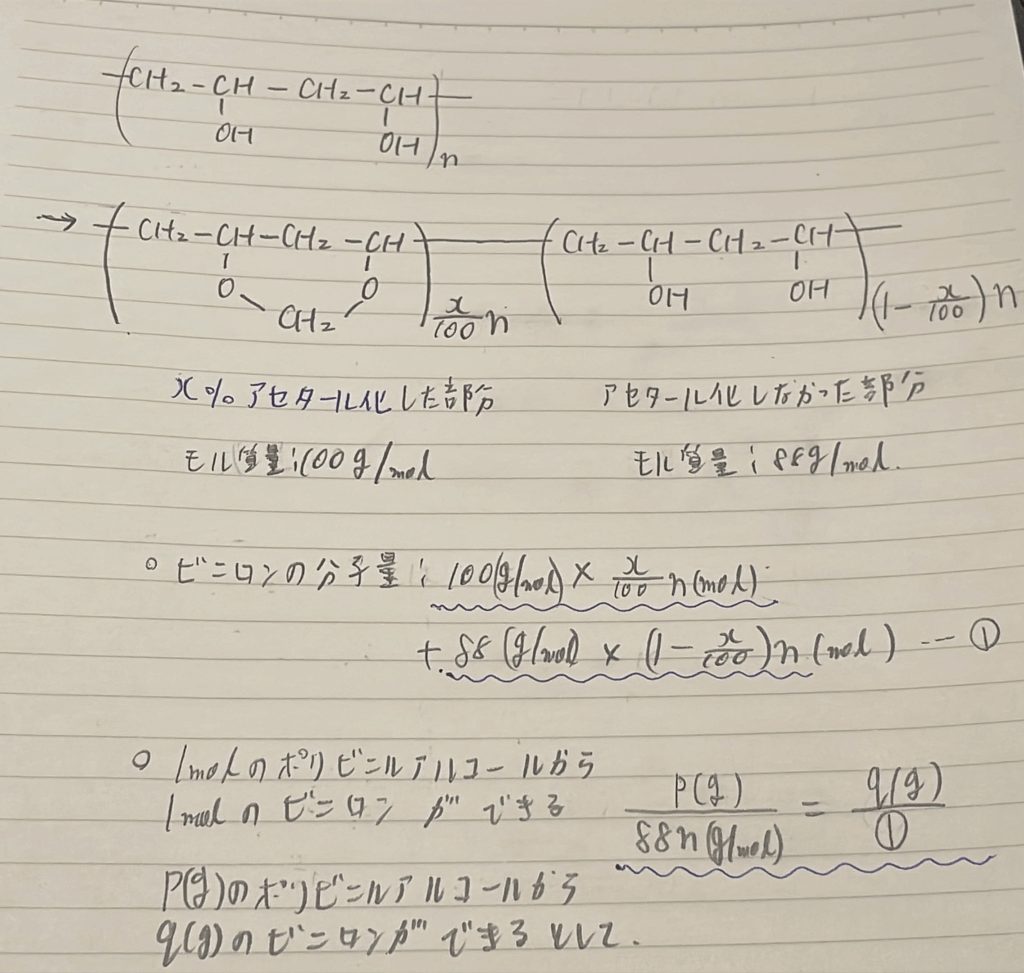 CH₂-CH-CH₂-CH
OH OH n
→ CH₂-CH-CH₂-CH CH₂-CH-CH₂-CH
O O OH OH
CH₂ x/100 n (1-x/100)n
x%アセタール化した部分 アセタール化しなかった部分
モル質量:100g/mol モル質量:88g/mol.
○ビニロンの分子量:100(g/mol)×x/100 n(mol)
+88(g/mol)×(1-x/100)n(mol) --- ①
○1molのポリビニルアルコールから
1molのビニロンができる P(g)/88n(g/mol) = q(g)/①
P(g)のポリビニルアルコールから
q(g)のビニロンができるとして.